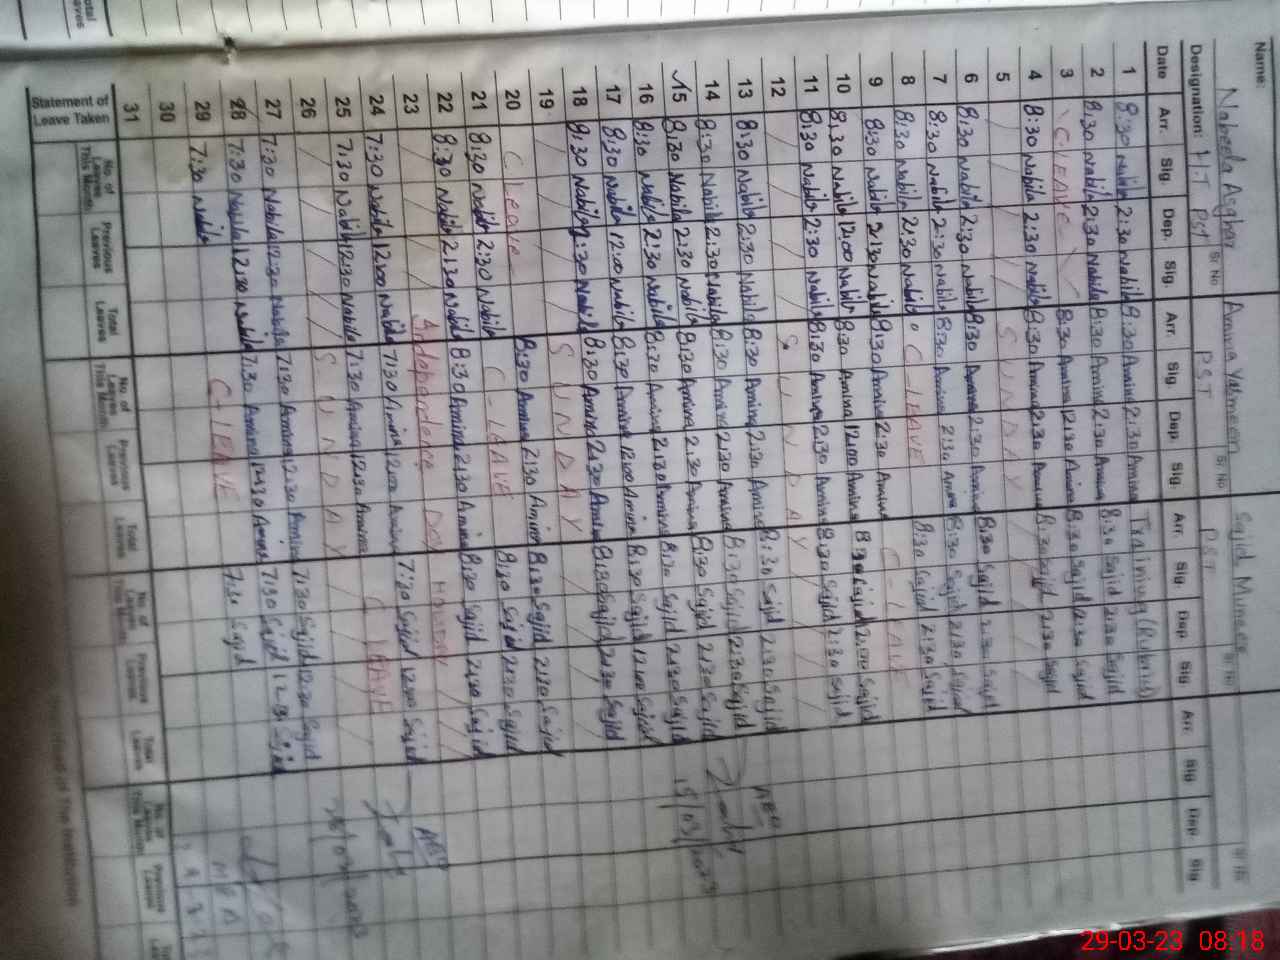 Name: Nabeela Asghar Amina Yasmeen Sajid Muneer
Designation: PST Sr. No PST Sr. No PST Sr. No
Date Arr. Sig. Dep. Sig. Arr. Sig. Dep. Sig. Arr. Sig. Dep Sig Arr. Sig Dep. Sig
1 8:30 Nabila 2:30 Nabila 8:30 Amina 2:30 Amina Training
2 8:30 Nabila 2:30 Nabila 8:30 Amina 2:30 Amina 8:30 Sajid 2:30 Sajid
3 C-LEAVE 8:30 Amina 12:30 Amina 8:30 Sajid 12:30 Sajid
4 8:30 Nabila 2:30 Nabila 8:30 Amina 2:30 Amina 8:30 Sajid 2:30 Sajid
5 SUNDAY
6 8:30 Nabila 2:30 Nabila 8:30 Amina 2:30 Amina 8:30 Sajid 2:30 Sajid
7 8:30 Nabila 2:30 Nabila 8:30 Amina 2:30 Amina 8:30 Sajid 2:30 Sajid
8 8:30 Nabila 2:30 Nabila C-LEAVE 8:30 Sajid 2:30 Sajid
9 8:30 Nabila 2:30 Nabila 8:30 Amina 2:30 Amina
10 8:30 Nabila 12:00 Nabila 8:30 Amina 12:00 Amina 8:30 Sajid Sajid
11 8:30 Nabila 2:30 Nabila 8:30 Amina 2:30 Amina 8:30 Sajid 2:30 Sajid
12 SUNDAY
13 8:30 Nabila 2:30 Nabila 8:30 Amina 2:30 Amina 8:30 Sajid 2:30 Sajid
14 8:30 Nabila 2:30 Nabila 8:30 Amina 2:30 Amina 8:30 Sajid 2:30 Sajid AEO
15 8:30 Nabila 2:30 Nabila 8:30 Amina 2:30 Amina 8:30 Sajid 2:30 Sajid
16 8:30 Nabila 2:30 Nabila 8:30 Amina 2:30 Amina 8:30 Sajid 2:30 Sajid 15/03/2023
17 8:30 Nabila 12:00 Nabila 8:30 Amina 12:00 Amina 8:30 Sajid 12:00 Sajid
18 8:30 Nabila 2:30 Nabila 8:30 Amina 2:30 Amina 8:30 Sajid 2:30 Sajid
19 SUNDAY
20 C Leave 8:30 Amina 2:30 Amina 8:30 Sajid 2:30 Sajid
21 8:30 Nabila 2:30 Nabila C-LEAVE 8:30 Sajid 2:30 Sajid
22 8:30 Nabila 2:30 Nabila 8:30 Amina 2:30 Amina 8:30 Sajid 2:30 Sajid
23 Independence Day Holiday AEO
24 7:30 Nabila 12:00 Nabila 7:30 Amina 12:00 Amina 7:30 Sajid 12:00 Sajid
25 7:30 Nabila 12:30 Nabila 7:30 Amina 12:30 Amina C LEAVE
26 SUNDAY
27 7:30 Nabila 12:30 Nabila 7:30 Amina 12:30 Amina 7:30 Sajid 12:30 Sajid
28 7:30 Nabila 12:30 Nabila 7:30 Amina 12:30 Amina 7:30 Sajid 12:30 Sajid
29 7:30 Nabila C-LEAVE 7:30 Sajid
30
31
Statement of Leave Taken No. of Leaves This Month Previous Leaves Total Leaves No. of Leaves This Month Previous Leaves Total Leaves No. of Leaves This Month Previous Leaves Total Leaves No. of Leaves This Month Previous Leaves
29-03-23 08:18